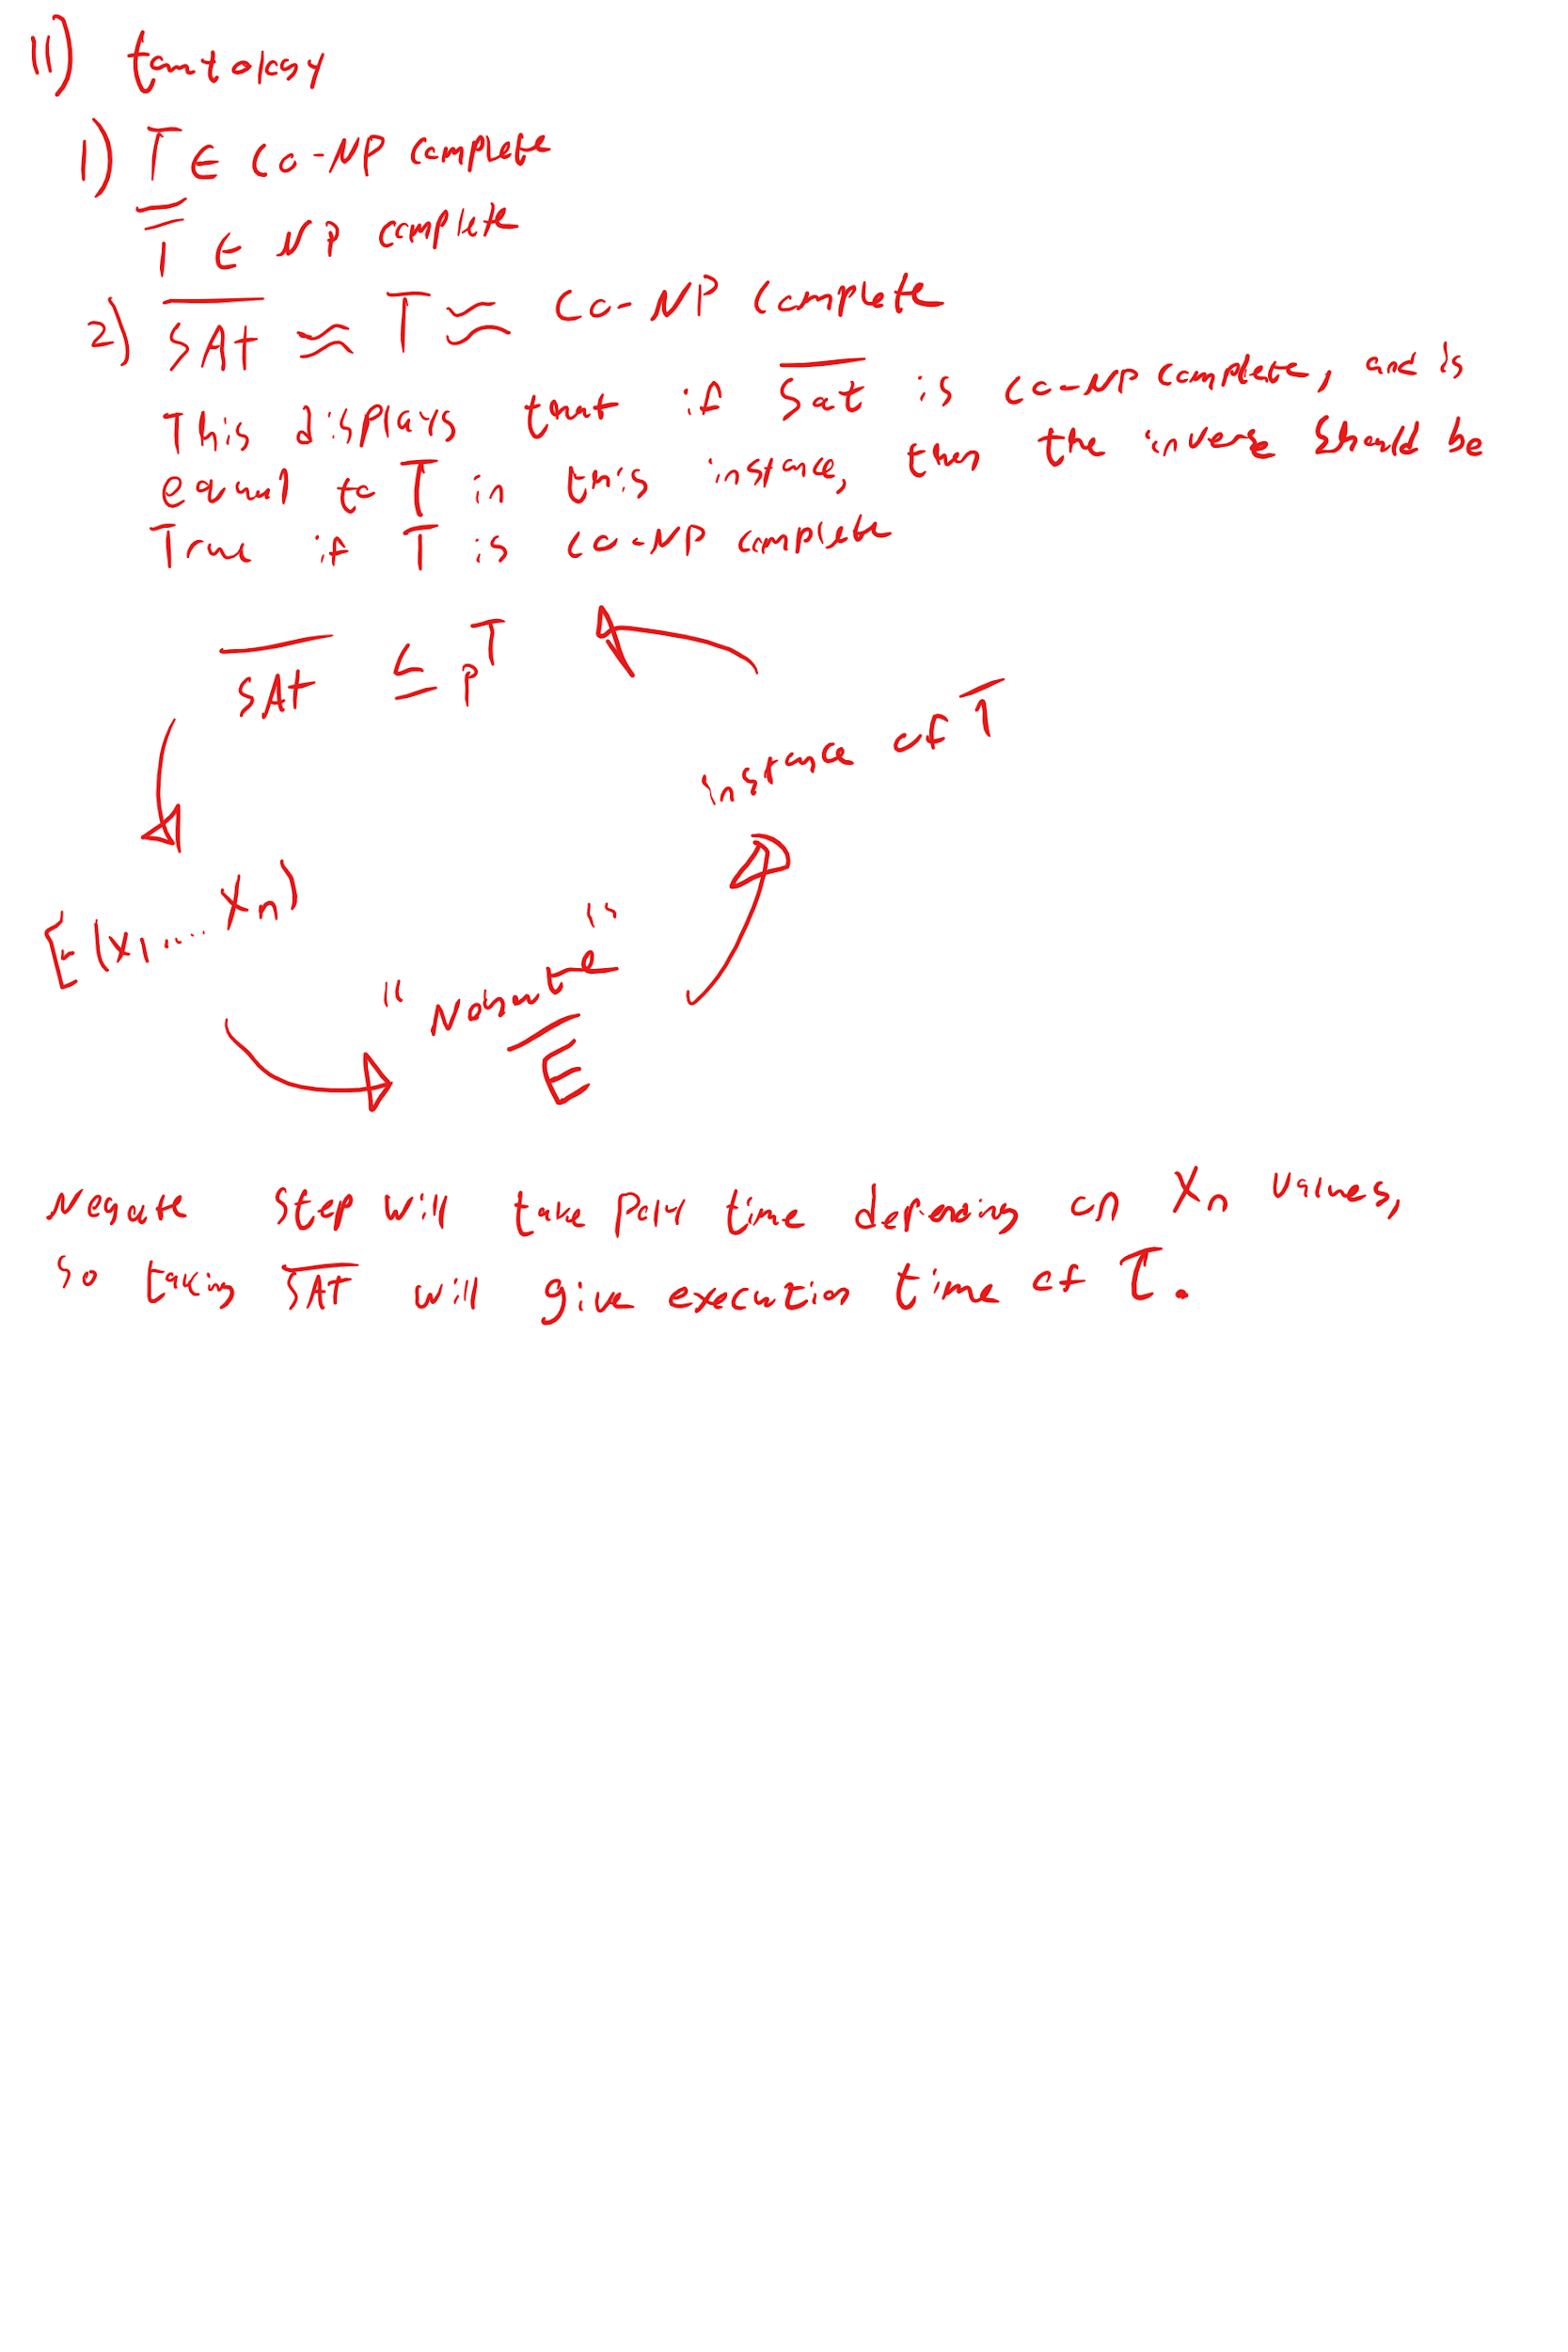 11) tautology
1) T ∈ co-NP complete
T̅ ∈ NP complete
2) S̅A̅t̅ ≈ T ≈ co-NP complete
This displays that if S̅a̅t̅ is co-NP complete, and is
equal to T in this instance, then the inverse should be
True if T is co-NP complete
S̅A̅t̅ ≤ p T
instance of T
E(x1,... Xn)
"Negate"
E̅
Negate step will take poly time depending on Xn values,
so taking S̅A̅T̅ will give execution time of T.